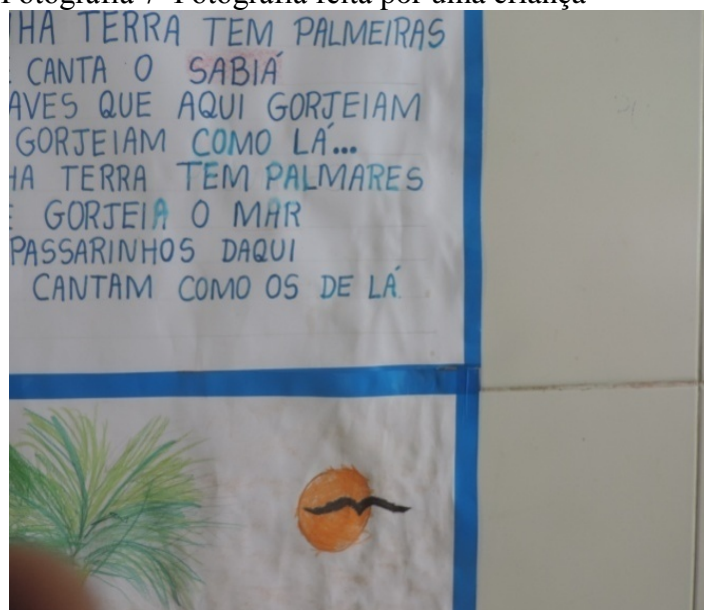 Fotografia 7- Fotografia feita por uma criança
HA TERRA TEM PALMEIRAS
E CANTA O SABIÁ
AVES QUE AQUI GORJEIAM
GORJEIAM COMO LÁ...
HA TERRA TEM PALMARES
E GORJEIA O MAR
PASSARINHOS DAQUI
CANTAM COMO OS DE LÁ